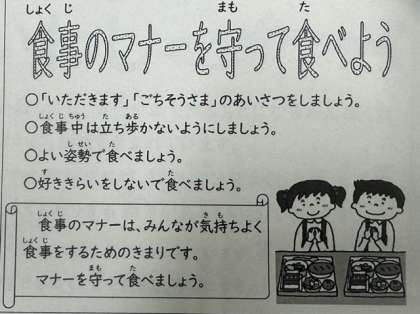 食事のマナーを守って食べよう
○「いただきます」「ごちそうさま」のあいさつをしましょう。
○食事中は立ち歩かないようにしましょう。
○よい姿勢で食べましょう。
○好ききらいをしないで食べましょう。
食事のマナーは、みんなが気持ちよく
食事をするためのきまりです。
マナーを守って食べましょう。